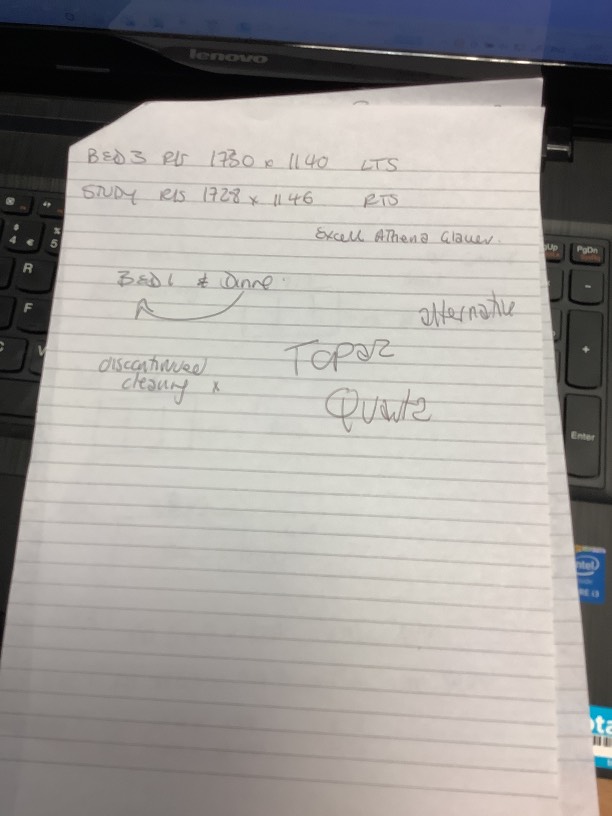 lenovo
BED 3 RIS 1730 x 1140 LTS
STUDY RIS 1728 x 1146 RTS
Excell Athena Glauer.
BED 1 & Dinne
alternative
discontinued
clearing x
TOPaz
Quartz
4 € 5 %
R
F
V
Up PgDn
-
+
Enter
intel